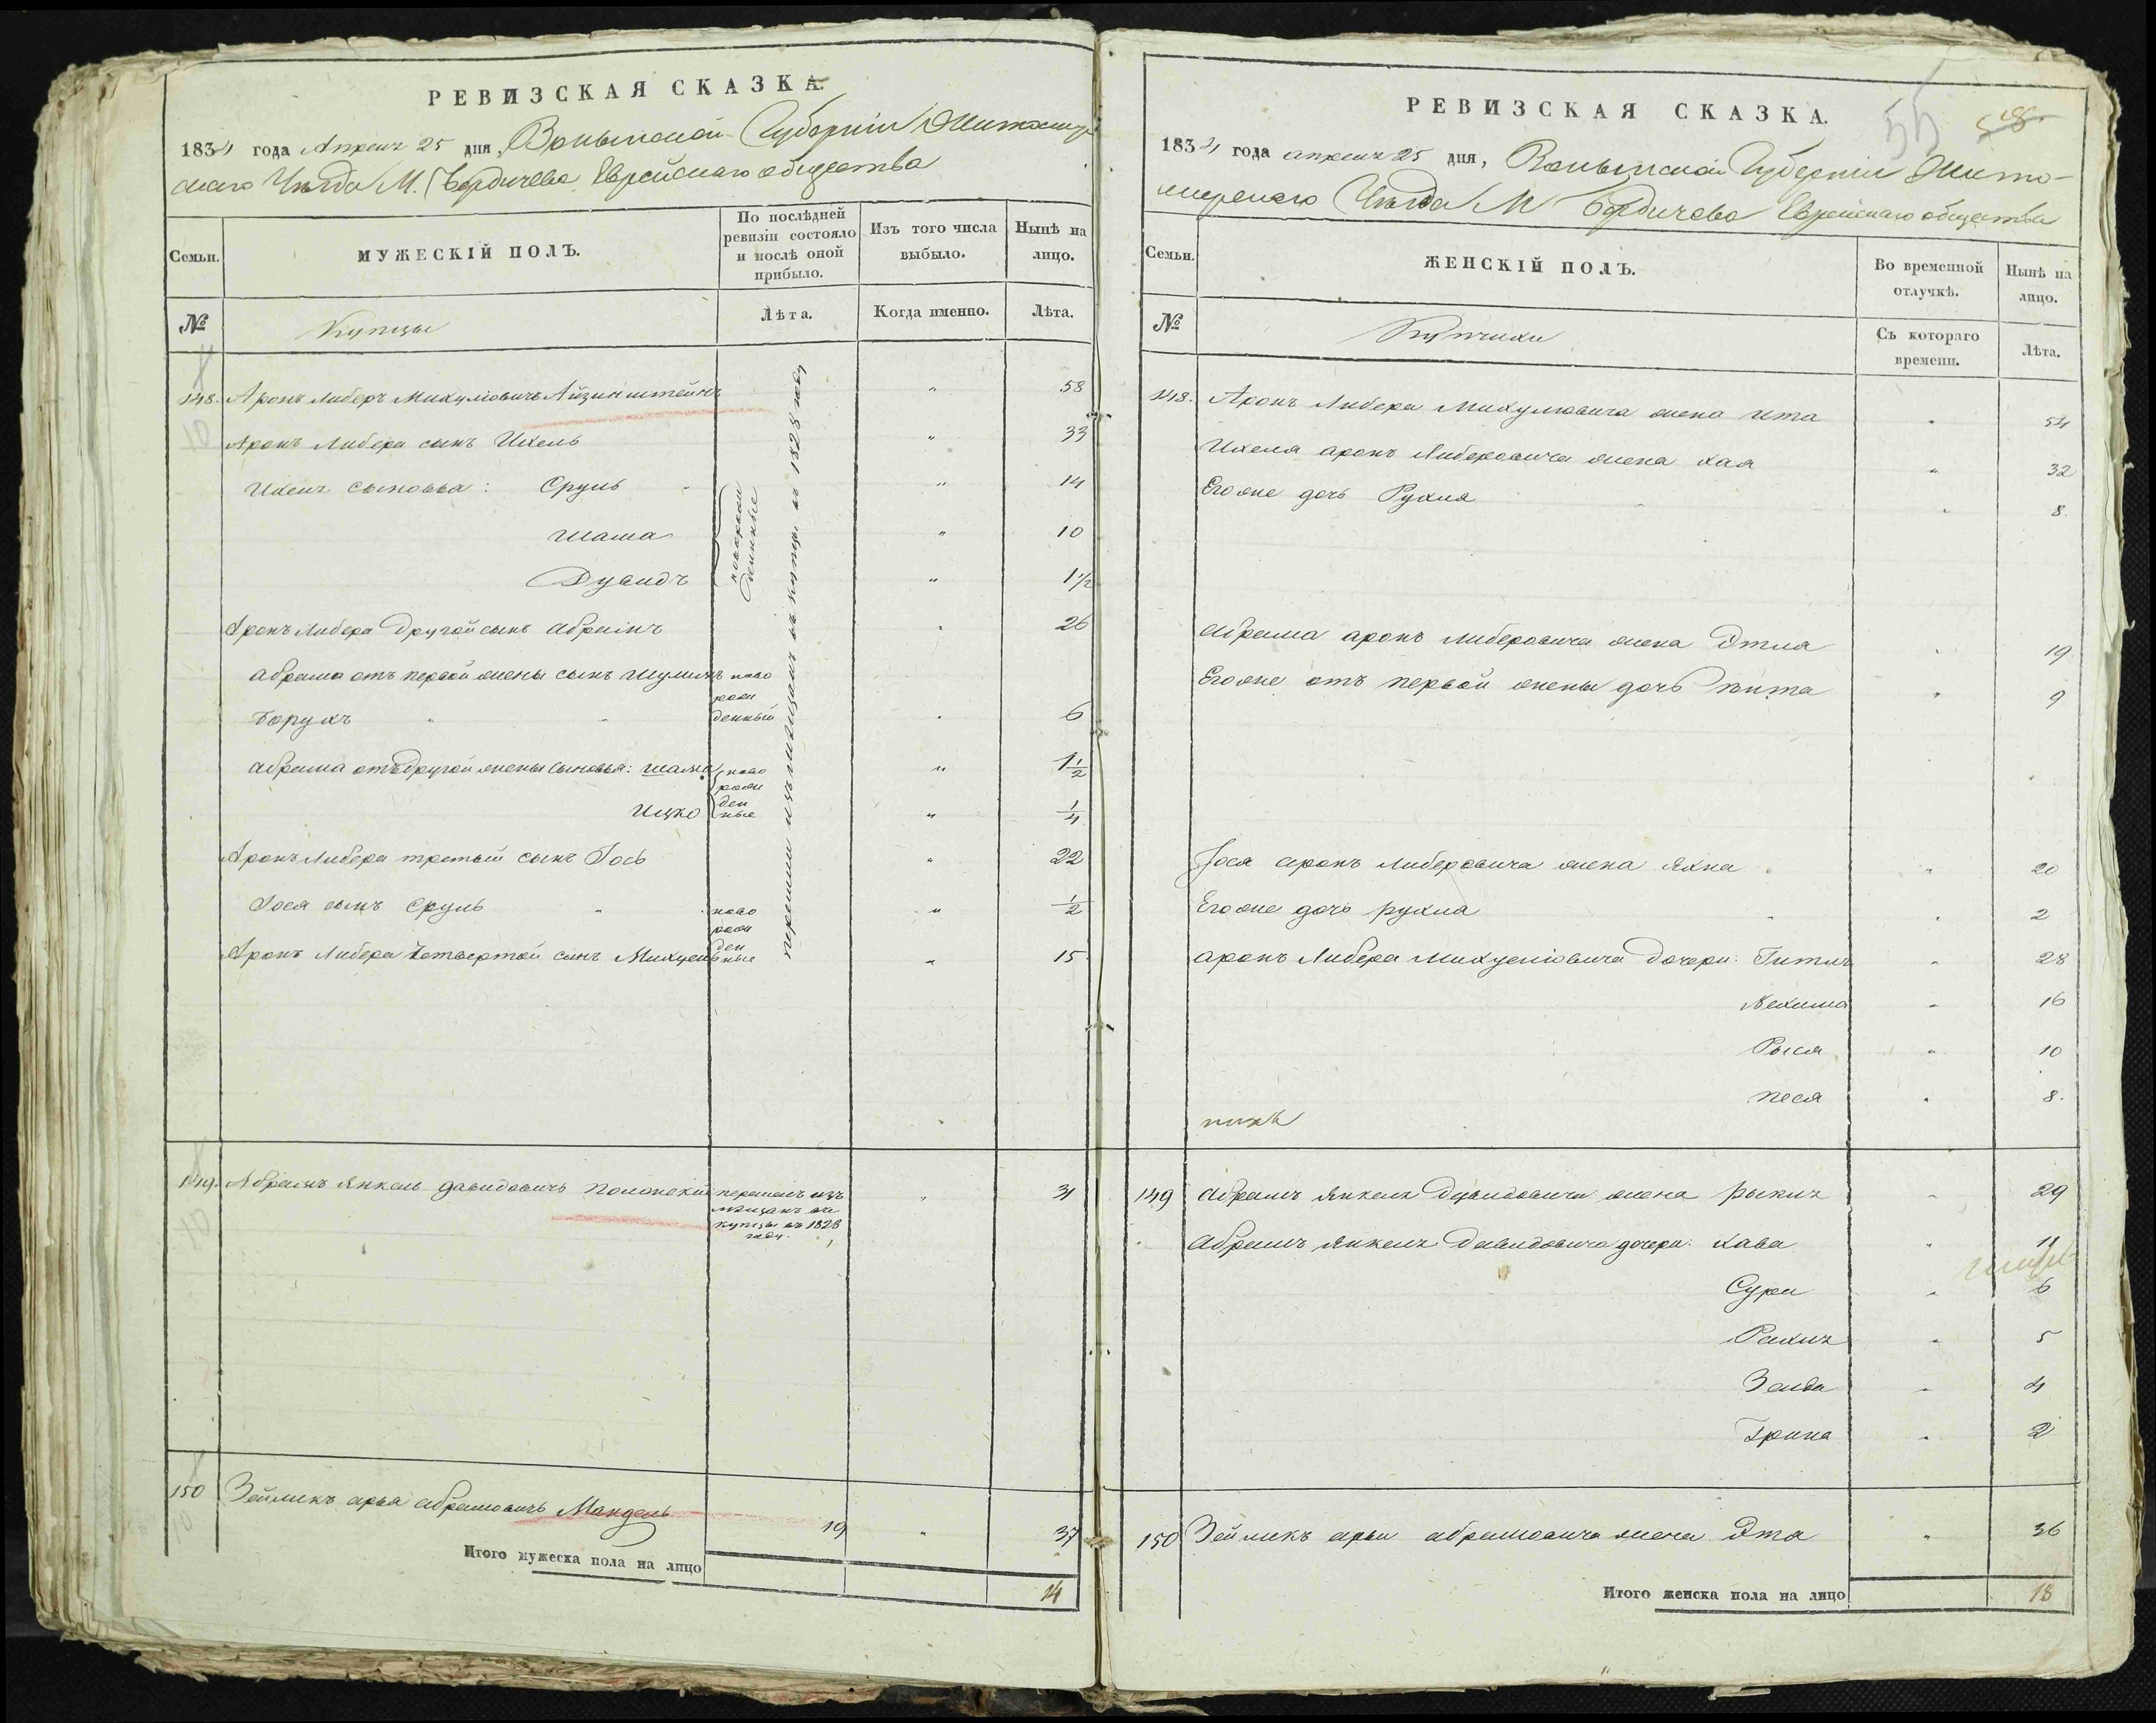 РЕВИЗСКАЯ СКАЗКА.
1834 года Апреля 25 дня, Волынской Губерніи Житомир
скаго Уѣзда М. Бердичева Еврейскаго общества
Семьи.
МУЖЕСКІЙ ПОЛЪ.
По послѣдней
ревизіи состояло
и послѣ оной
прибыло.
Изъ того числа
выбыло.
Нынѣ на
лицо.
№
Купцы
Лѣта.
Когда именно.
Лѣта.
перешли изъ мещанъ въ купцы въ 1828 году
148. Аронъ Либеръ Михуліовичъ Айзинштейнъ " 58
10
Аронъ Либера сынъ Ихель " 33
Ихеля сыновья: Сруль " 14
новорож
денные
Шама " 10
Дувидъ " 1 1/2
Аронъ Либера другой сынъ Абрамъ " 26
Абрама отъ первой жены сынъ Шулимъ ново
рож
Борухъ " " денный " 6
Абрама отъ другой жены сыновья: Шама ново " 1 1/2
рож
Ицко ден " 1/4
ные
Аронъ Либера третьий сынъ Іось " 22
Іося сынъ Сруль " ново " 1/2
рож
Аронъ Либера Четвертой сынъ Михуель ден " 15
ные
149. Абрамъ Янкель Давидовичъ Полонскій перешелъ изъ " 31
мещанъ въ
купцы въ 1828
году.
10
150 Зейликъ Арья Абрамовичъ Мандель 19 " 37
10
Итого мужеска пола на лицо 14
РЕВИЗСКАЯ СКАЗКА.
55
1834 года апреля 25 дня, Волынской Губерніи Жито-
мирскаго Уѣзда М Бердичева Еврейскаго общества
Семьи.
ЖЕНСКІЙ ПОЛЪ.
Во временной
отлучкѣ.
Нынѣ на
лицо.
№
Купчихи
Съ котораго
времени.
Лѣта.
148. Аронъ Либера Михулювича жена Ита " 54
Ихеля Аронъ Либеровича жена Хая " 32
Егоже дочь Рухля " 8
Абрама Аронъ Либеровича жена Этля " 19
Егоже отъ первой жены дочь " 9
Іося Аронъ Либеровича жена Яхна " 20
Егоже дочь Рухля " " 2
Аронъ Либера Михуеліовича дочери: Гитля " 28
Нехима " 16
Рыся " 10
Песя " 8.
149 Абрамъ Янкеля Дувидовича жена Рыкля " 29
Абрамъ Янкеля Давидовича дочери: Хава " 11
Сура " 6
Рахля " 5
Зелда " 4
" 2
150 Зейликъ Арьи Абрамовича жена Эта " 36
Итого женска пола на лицо 18